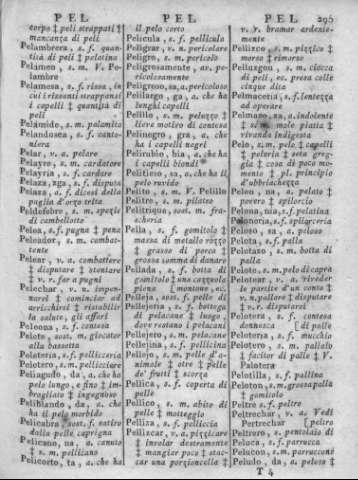 PEL PEL PEL 295
corpo ‡ peli strappati ‡
mancanza di peli
Pelambrera, s. f. quan-
tità di peli ‡ pelatina
Pelámen, s. m. V. Pe-
lambre
Pelamesa, s. f. rissa, in
cui i rissanti strappansi
i capelli ‡ quantità di
peli
Pelámido, s. m. palamita
Pelandusca, s. f. canto-
niera
Pelar, v. a. pelare
Pelayre, s. m. cardatore
Pelayría, s. f. cardare
Pelaza, zga, s. f. disputa
Pelaza, a. f. dicesi della
paglia d'orzo trita
Peldefebre, s. m. spezie
di cambellotto
Pelea, s. f. pugna ‡ pena
Peleador, s. m. combat-
tente
Pelear, v. a. combattere
‡ disputare ‡ stentare
‡ v. r. far a pugni
Pelechar, v. n. impen-
narsi ‡ cominciar ad
arricchirsi ‡ ristabilir
la salute, gli affari
Peleona, s. f. contesa
Pelete, sost. m. giocator
alla bassetta
Peletería, s. f. pellicceria
Peletero, s. m. pellicciere
Peliagudo, da, a. che ha
pelo lungo, e fino ‡ im-
brogliato ‡ ingegnoso
Peliblando, da, a. che
ha il pelo morbido
Pelicabra, sost. f. satiro
dalla pelle caprigna
Pelicano, na, a. canuto
‡ s. m. pellicano
Pelicorto, ta, a. che ha
il pelo corto
Pelicula, s. f. pellicula
Peligrar, v. n. pericolare
Peligro, s. m. pericolo
Peligrosamente, av. pe-
ricolosamente
Peligroso, sa, a. pericoloso
Pelilargo, ga, a. che ha
lunghi capelli
Pelillo, s. m. peluzzo ‡
lieve motivo di contesa
Pelinegro, gra, a. che
ha i capelli negri
Pelirubio, bia, a. che ha
i capelli biondi
Pelitieso, sa, a. che ha il
pelo ruvido
Pelito, s. m. V. Pelillo
Pelitre, s. m. pilatro
Pelitrique, sost. m. fra-
scheria
Pella, s. f. gomitolo ‡
massa di metallo rozzo
‡ grasso di porco ‡
grossa somma di danaro
Pellada, s. f. botta di
gomitolo ‡ una cazzuola
piena
Pelleja, sost. f. pelle di
Pellejería, s. f. bottega
di pelacane ‡ luogo
dove restano i pelacani
Pellejero, s. m. pelacane
Pellejina, s. f. pellicina
Pellejo, s. m. pelle d'a-
nimale ‡ otre ‡ pelle
de' frutti ‡ scorza
Pellica, s. f. coperta di
pelle
Pellico, s. m. abito di
pelle ‡ motteggio
Pelliza, s. f. pelliccia
Pellizcar, v. a. pizzicare
‡ involar destramente
‡ mangiar poco ‡ stac-
car una porzioncella ‡
v. r. bramar ardente-
mente
Pellizco, s. m. pizzico ‡
morso ‡ rimorso
Pelluzgon, s. m. ciocca
di peli, ec. presa colle
cinque dita
Pelmacería, s. f. lentezza
ad operare
Pelmazo, za, a. indolente
vivanda indigesta
Pelo, s. m. pelo ‡ capelli
‡ peluria ‡ seta greg-
gia ‡ cosa di poco mo-
mento ‡ pl. principio
d'ubbriachezza
Pelon, na, a. pelato ‡
povero ‡ spilorcio
Pelona, nía, s. f. pelatina
Pelonería, s. f. spilorceria
Peloso, sa, a. peloso
Pelota, s. f. palla
Pelotazo, s. m. botta di
palla
Pelote, s. m. pelo di capra
Pelotear, v. a. riveder
le partite d'un conto ‡
v. n. pallare ‡ disputare ‡
v. r. disputarsi
Pelotera, s. f. contesa
donnesca [di palle
Pelotería, s. f. mucchio
Pelotero, s. m. pallajo ‡
facitor di palle ‡ V.
Pelotera
Pelotilla, s. f. pallina
Peloton, s. m. grossa palla
‡ gomitolo
Peltre, s. m. peltro
Peltrechar, v. a. Vedi
Pertrechar [peltro
Peltrero, s. pentolaio di
Peluca, s. f. parrucca
Pelucon, s. m. parruccone
Peludo, da, a. peloso ‡
T 4